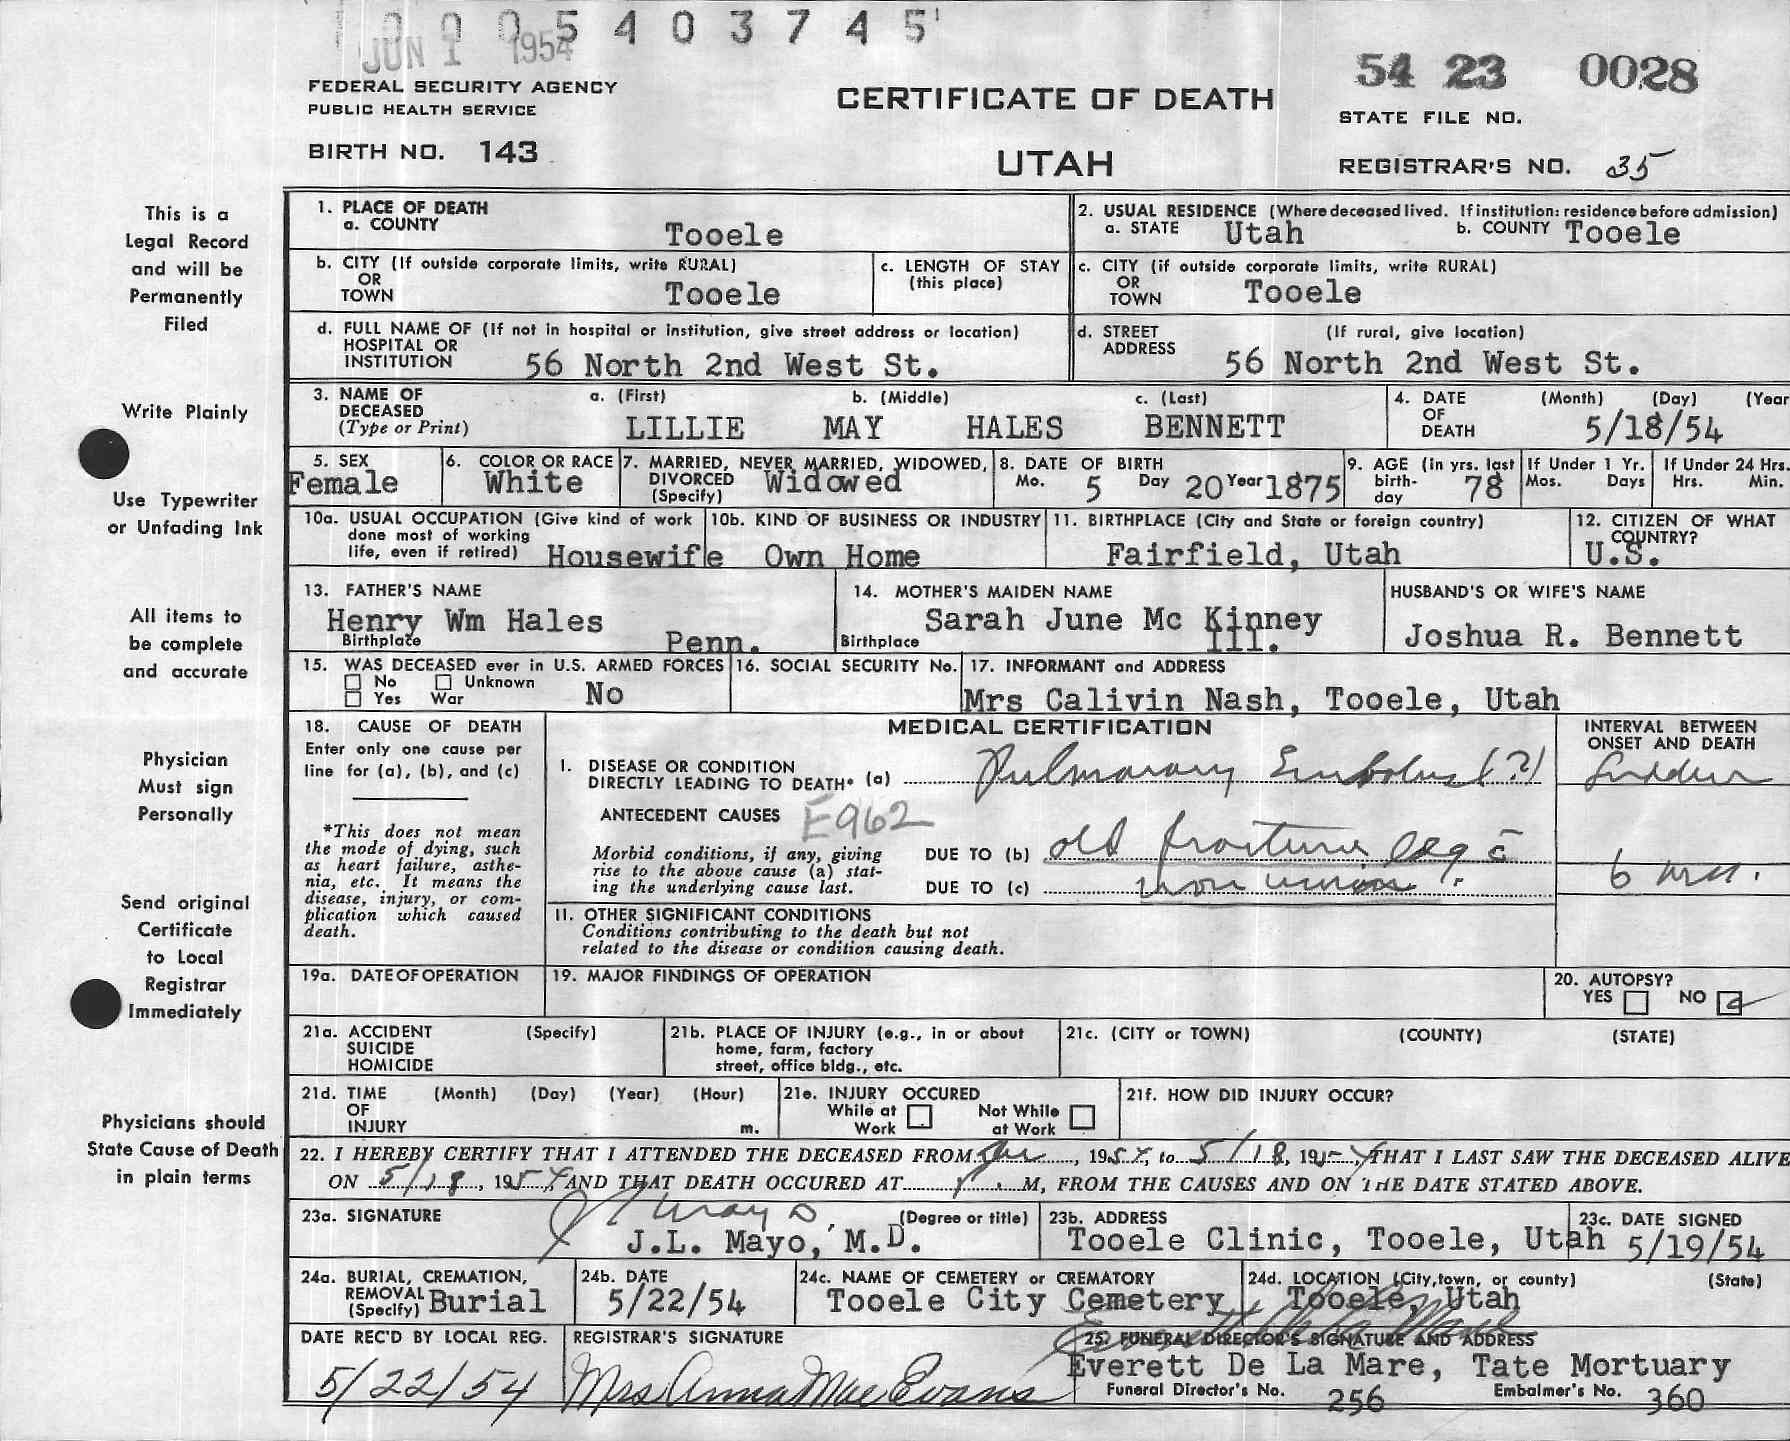 1 0 0 0 5 4 0 3 7 4 5
JUN 1 1954
54 23 0028
FEDERAL SECURITY AGENCY
PUBLIC HEALTH SERVICE
CERTIFICATE OF DEATH
STATE FILE NO.
BIRTH NO. 143
UTAH
REGISTRAR'S NO. 35
This is a
Legal Record
and will be
Permanently
Filed
Write Plainly
Use Typewriter
or Unfading Ink
All items to
be complete
and accurate
Physician
Must sign
Personally
Send original
Certificate
to Local
Registrar
Immediately
Physicians should
State Cause of Death
in plain terms
1. PLACE OF DEATH
a. COUNTY Tooele
2. USUAL RESIDENCE (Where deceased lived. If institution: residence before admission)
a. STATE Utah b. COUNTY Tooele
b. CITY (If outside corporate limits, write RURAL)
OR
TOWN Tooele
c. LENGTH OF STAY
(this place)
c. CITY (if outside corporate limits, write RURAL)
OR
TOWN Tooele
d. FULL NAME OF (If not in hospital or institution, give street address or location)
HOSPITAL OR
INSTITUTION 56 North 2nd West St.
d. STREET (If rural, give location)
ADDRESS 56 North 2nd West St.
3. NAME OF a. (First) b. (Middle) c. (Last)
DECEASED
(Type or Print) LILLIE MAY HALES BENNETT
4. DATE (Month) (Day) (Year
OF
DEATH 5/18/54
5. SEX
Female
6. COLOR OR RACE
White
7. MARRIED, NEVER MARRIED, WIDOWED,
DIVORCED Widowed
(Specify)
8. DATE OF BIRTH
Mo. 5 Day 20 Year 1875
9. AGE (in yrs. last
birth-
day 78
If Under 1 Yr.
Mos. Days
If Under 24 Hrs.
Hrs. Min.
10a. USUAL OCCUPATION (Give kind of work
done most of working
life, even if retired) Housewife
10b. KIND OF BUSINESS OR INDUSTRY
Own Home
11. BIRTHPLACE (City and State or foreign country)
Fairfield, Utah
12. CITIZEN OF WHAT
COUNTRY?
U.S.
13. FATHER'S NAME
Henry Wm Hales
Birthplace Penn.
14. MOTHER'S MAIDEN NAME
Sarah June Mc Kinney
Birthplace Ill.
HUSBAND'S OR WIFE'S NAME
Joshua R. Bennett
15. WAS DECEASED ever in U.S. ARMED FORCES
No Unknown
Yes War No
16. SOCIAL SECURITY No.
17. INFORMANT and ADDRESS
Mrs Calivin Nash, Tooele, Utah
18. CAUSE OF DEATH
Enter only one cause per
line for (a), (b), and (c)
*This does not mean
the mode of dying, such
as heart failure, asthe-
nia, etc. It means the
disease, injury, or com-
plication which caused
death.
MEDICAL CERTIFICATION
I. DISEASE OR CONDITION
DIRECTLY LEADING TO DEATH* (a) Pulmonary Embolus (?)
ANTECEDENT CAUSES E962
Morbid conditions, if any, giving
rise to the above cause (a) stat-
ing the underlying cause last.
DUE TO (b) old fracture leg c̄
DUE TO (c) non union
INTERVAL BETWEEN
ONSET AND DEATH
Sudden
6
II. OTHER SIGNIFICANT CONDITIONS
Conditions contributing to the death but not
related to the disease or condition causing death.
19a. DATE OF OPERATION
19. MAJOR FINDINGS OF OPERATION
20. AUTOPSY?
YES NO
21a. ACCIDENT (Specify)
SUICIDE
HOMICIDE
21b. PLACE OF INJURY (e.g., in or about
home, farm, factory
street, office bldg., etc.
21c. (CITY or TOWN) (COUNTY) (STATE)
21d. TIME (Month) (Day) (Year) (Hour)
OF
INJURY m.
21e. INJURY OCCURED
While at Work Not While at Work
21f. HOW DID INJURY OCCUR?
22. I HEREBY CERTIFY THAT I ATTENDED THE DECEASED FROM Jan, 1954, to 5/18, 1954, THAT I LAST SAW THE DECEASED ALIVE
ON 5/18, 1954, AND THAT DEATH OCCURED AT M, FROM THE CAUSES AND ON THE DATE STATED ABOVE.
23a. SIGNATURE (Degree or title)
J.L. Mayo, M.D.
23b. ADDRESS
Tooele Clinic, Tooele, Utah
23c. DATE SIGNED
5/19/54
24a. BURIAL, CREMATION,
REMOVAL
(Specify) Burial
24b. DATE
5/22/54
24c. NAME OF CEMETERY or CREMATORY
Tooele City Cemetery
24d. LOCATION (City, town, or county) (State)
Tooele, Utah
DATE REC'D BY LOCAL REG.
5/22/54
REGISTRAR'S SIGNATURE
Mrs Anna Mae Evans
25. FUNERAL DIRECTOR'S SIGNATURE AND ADDRESS
Everett De La Mare, Tate Mortuary
Funeral Director's No. 256 Embalmer's No. 360